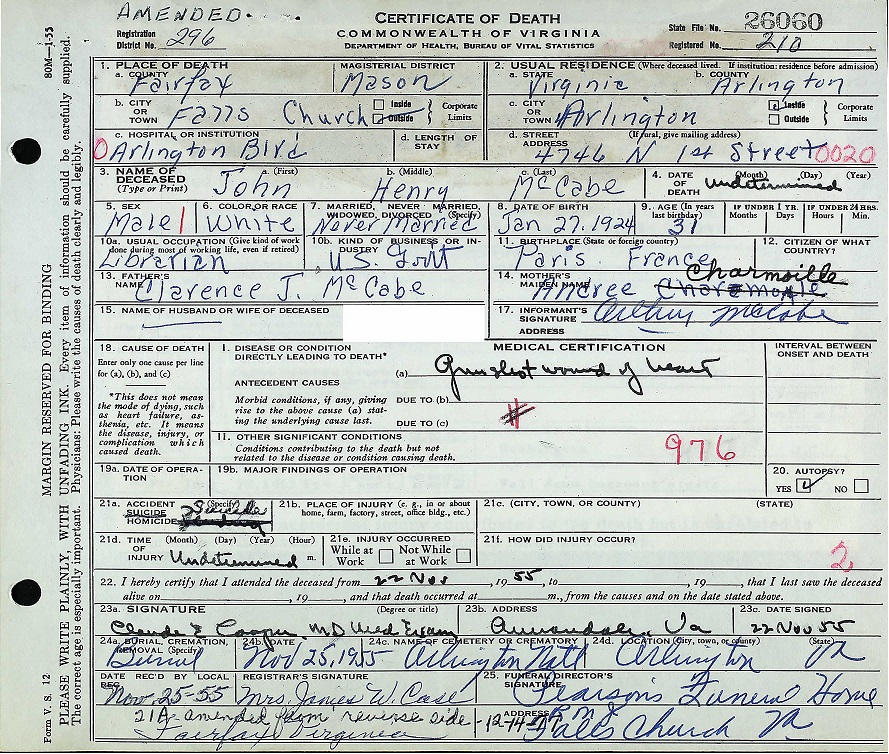 AMENDED.
CERTIFICATE OF DEATH
COMMONWEALTH OF VIRGINIA
DEPARTMENT OF HEALTH, BUREAU OF VITAL STATISTICS
Registration District No. 296
State File No. 26060
Registered No. 210
80M—1-55
MARGIN RESERVED FOR BINDING
PLEASE WRITE PLAINLY, WITH UNFADING INK. Every item of information should be carefully supplied.
The correct age is especially important. Physicians: Please write the causes of death clearly and legibly.
Form V. S. 12
1. PLACE OF DEATH
a. COUNTY Fairfax
MAGISTERIAL DISTRICT Mason
2. USUAL RESIDENCE (Where deceased lived. If institution: residence before admission)
a. STATE Virginia
b. COUNTY Arlington
b. CITY OR TOWN Falls Church
Inside Outside } Corporate Limits
c. CITY OR TOWN Arlington
Inside Outside } Corporate Limits
c. HOSPITAL OR INSTITUTION
0 Arlington Blvd
d. LENGTH OF STAY
d. STREET ADDRESS (If rural, give mailing address)
4746 N 1st Street 0020
3. NAME OF DECEASED (Type or Print)
a. (First) John
b. (Middle) Henry
c. (Last) McCabe
4. DATE OF DEATH (Month) (Day) (Year)
Undetermined
5. SEX Male 1
6. COLOR OR RACE White
7. MARRIED, NEVER MARRIED, WIDOWED, DIVORCED (Specify)
Never Married
8. DATE OF BIRTH Jan 27, 1924
9. AGE (In years last birthday) 31
IF UNDER 1 YR. Months Days
IF UNDER 24 HRS. Hours Min.
10a. USUAL OCCUPATION (Give kind of work done during most of working life, even if retired)
Librarian
10b. KIND OF BUSINESS OR INDUSTRY
U.S. Govt
11. BIRTHPLACE (State or foreign country)
Paris. France
12. CITIZEN OF WHAT COUNTRY?
13. FATHER'S NAME Clarence J. McCabe
14. MOTHER'S MAIDEN NAME Andree Charmoille
15. NAME OF HUSBAND OR WIFE OF DECEASED
17. INFORMANT'S SIGNATURE Arthur McCabe
ADDRESS
18. CAUSE OF DEATH
Enter only one cause per line for (a), (b), and (c)
*This does not mean the mode of dying, such as heart failure, asthenia, etc. It means the disease, injury, or complication which caused death.
MEDICAL CERTIFICATION
INTERVAL BETWEEN ONSET AND DEATH
I. DISEASE OR CONDITION DIRECTLY LEADING TO DEATH*
(a) Gunshot wound of heart
ANTECEDENT CAUSES
Morbid conditions, if any, giving rise to the above cause (a) stating the underlying cause last.
DUE TO (b)
DUE TO (c)
11. OTHER SIGNIFICANT CONDITIONS
Conditions contributing to the death but not related to the disease or condition causing death.
976
19a. DATE OF OPERATION
19b. MAJOR FINDINGS OF OPERATION
20. AUTOPSY?
YES NO
21a. ACCIDENT SUICIDE HOMICIDE (Specify)
Suicide
21b. PLACE OF INJURY (e. g., in or about home, farm, factory, street, office bldg., etc.)
21c. (CITY, TOWN, OR COUNTY) (STATE)
21d. TIME OF INJURY (Month) (Day) (Year) (Hour) m.
Undetermined
21e. INJURY OCCURRED
While at Work Not While at Work
21f. HOW DID INJURY OCCUR?
2
22. I hereby certify that I attended the deceased from 22 Nov, 1955, to , 19 , that I last saw the deceased
alive on , 19 , and that death occurred at m., from the causes and on the date stated above.
23a. SIGNATURE (Degree or title)
Claude E Cooper, MD Med Exam
23b. ADDRESS
Annandale, Va
23c. DATE SIGNED
22 Nov 55
24a. BURIAL, CREMATION, REMOVAL (Specify)
Burial
24b. DATE
Nov 25, 1955
24c. NAME OF CEMETERY OR CREMATORY
Arlington Natl
24d. LOCATION (City, town, or county) (State)
Arlington Va
DATE REC'D BY LOCAL REG.
Nov. 25-55
REGISTRAR'S SIGNATURE
Mrs. James W. Case
25. FUNERAL DIRECTOR'S SIGNATURE
Pearson's Funeral Home
ADDRESS
Falls Church Va
21A-amended from reverse side -12-14
Fairfax Virginia